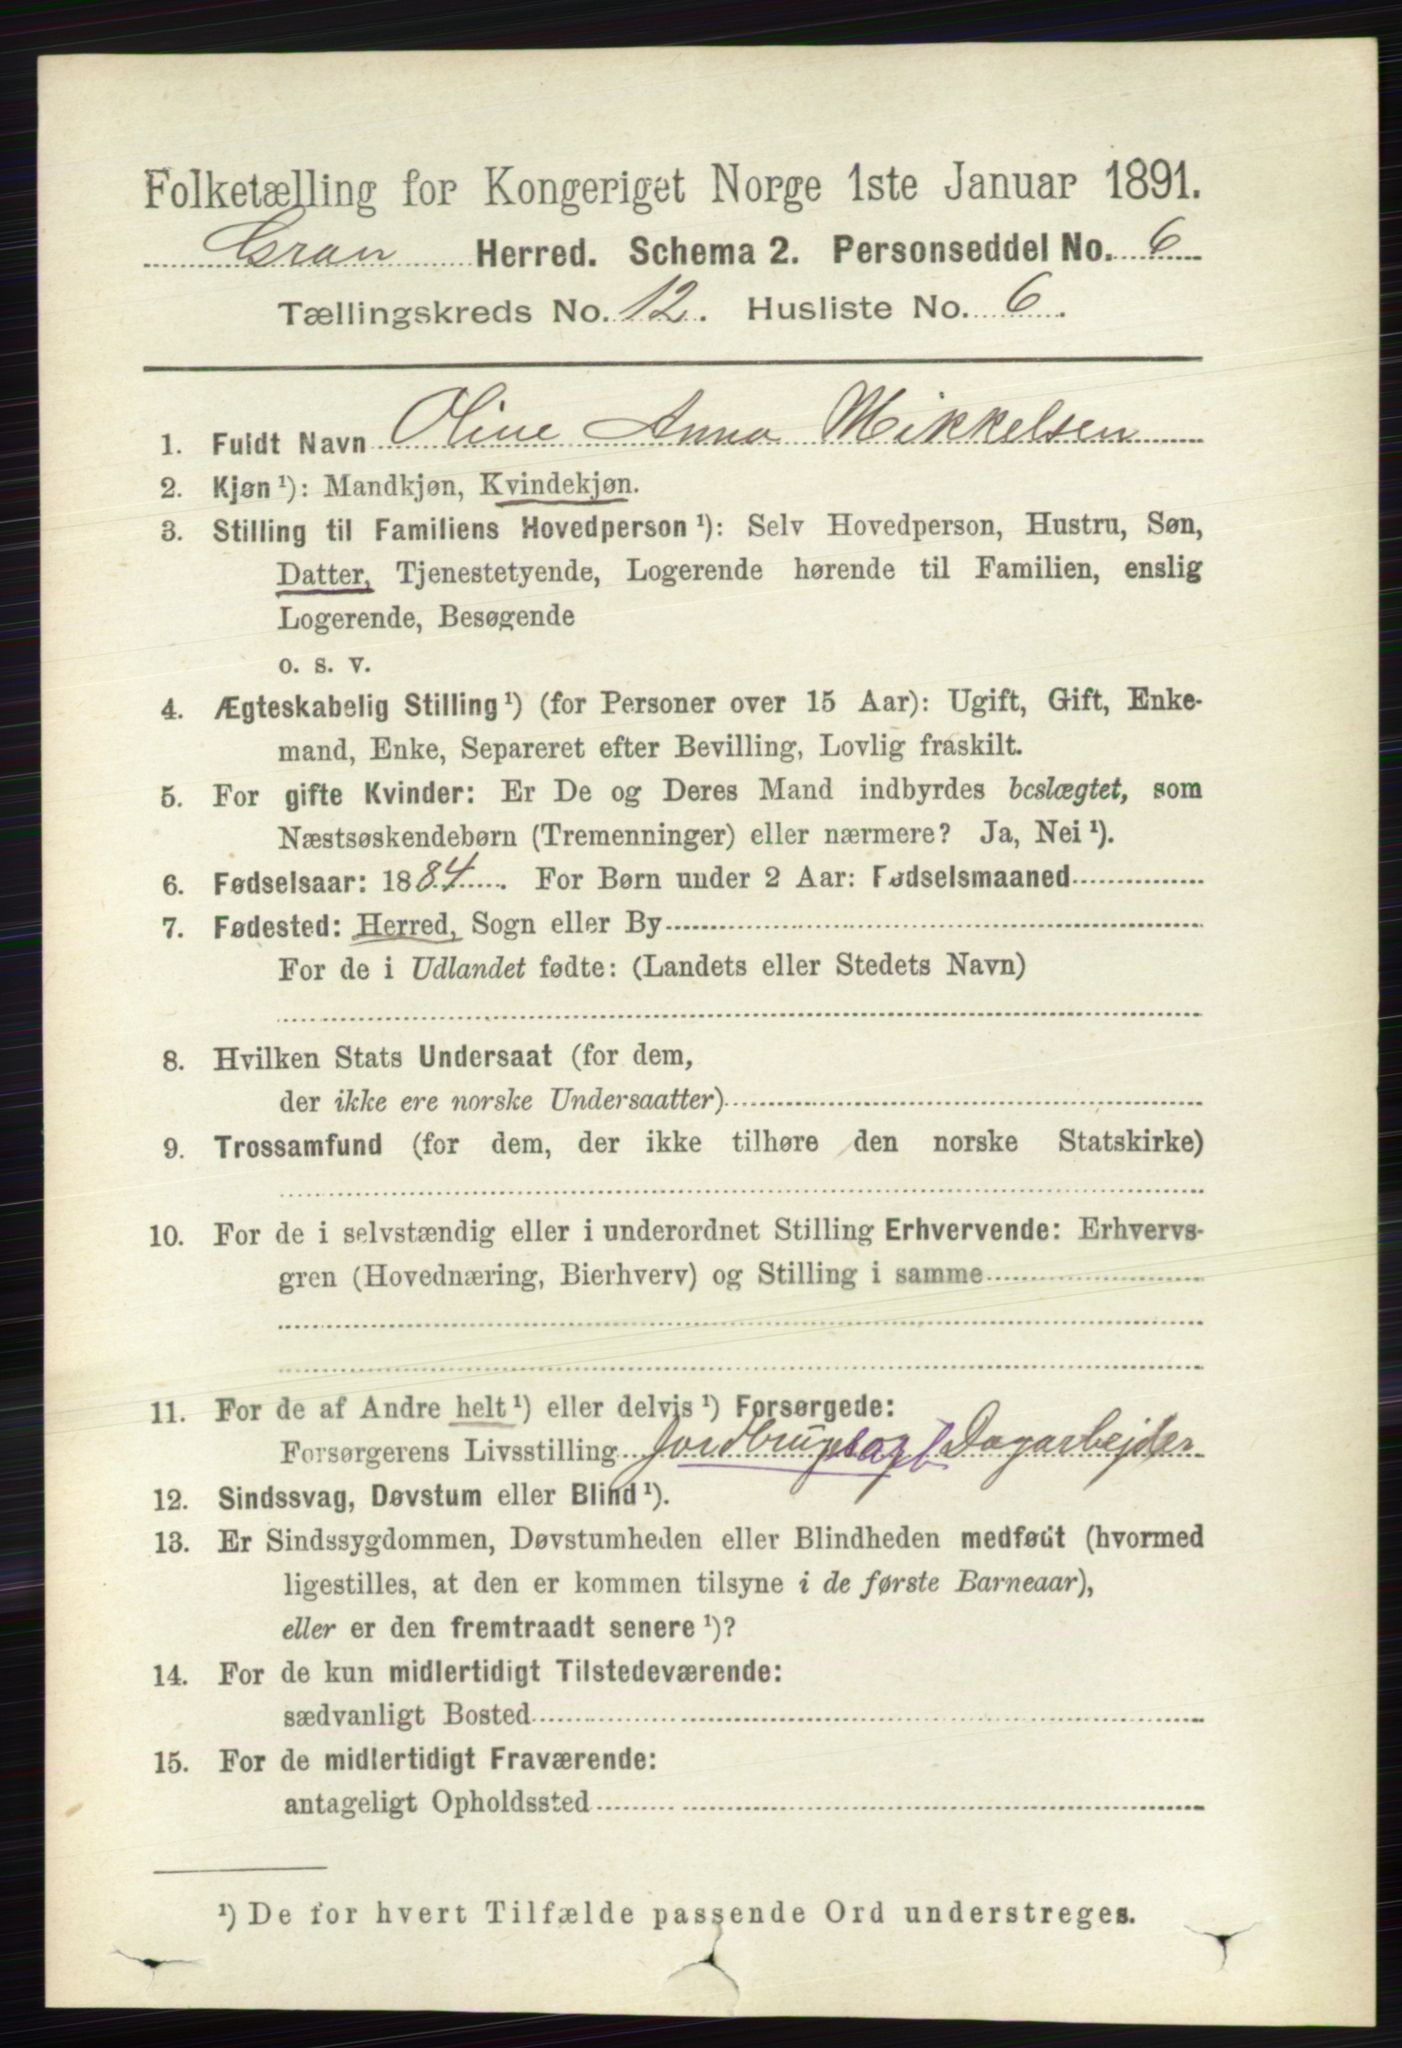 Folketælling for Kongeriget Norge 1ste Januar 1891.
Gran Herred. Schema 2. Personseddel No. 6
Tællingskreds No. 12. Husliste No. 6.
1. Fuldt Navn Oline Anna Mikkelsen
2. Kjøn ¹): Mandkjøn, Kvindekjøn.
3. Stilling til Familiens Hovedperson ¹): Selv Hovedperson, Hustru, Søn,
Datter, Tjenestetyende, Logerende hørende til Familien, enslig
Logerende, Besøgende
o. s. v.
4. Ægteskabelig Stilling ¹) (for Personer over 15 Aar): Ugift, Gift, Enke-
mand, Enke, Separeret efter Bevilling, Lovlig fraskilt.
5. For gifte Kvinder: Er De og Deres Mand indbyrdes beslægtet, som
Næstsøskendebørn (Tremenninger) eller nærmere? Ja, Nei ¹).
6. Fødselsaar: 1884. For Børn under 2 Aar: Fødselsmaaned
7. Fødested: Herred, Sogn eller By
For de i Udlandet fødte: (Landets eller Stedets Navn)
8. Hvilken Stats Undersaat (for dem,
der ikke ere norske Undersaatter)
9. Trossamfund (for dem, der ikke tilhøre den norske Statskirke)
10. For de i selvstændig eller i underordnet Stilling Erhvervende: Erhvervs-
gren (Hovednæring, Bierhverv) og Stilling i samme
11. For de af Andre helt ¹) eller delvis ¹) Forsørgede:
Forsørgerens Livsstilling Dagarbejder
12. Sindssvag, Døvstum eller Blind ¹).
13. Er Sindssygdommen, Døvstumheden eller Blindheden medfødt (hvormed
ligestilles, at den er kommen tilsyne i de første Barneaar),
eller er den fremtraadt senere ¹)?
14. For de kun midlertidigt Tilstedeværende:
sædvanligt Bosted
15. For de midlertidigt Fraværende:
antageligt Opholdssted
¹) De for hvert Tilfælde passende Ord understreges.